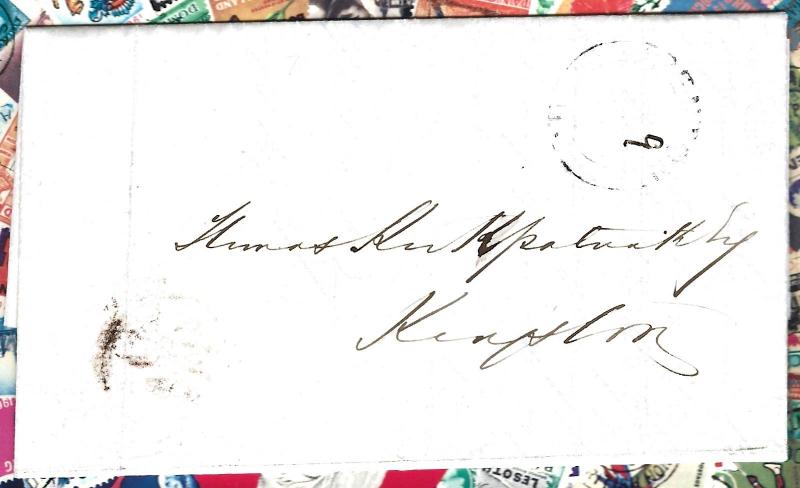 9
Thomas Kirkpatrick Esq
Kingston
LESOTHO